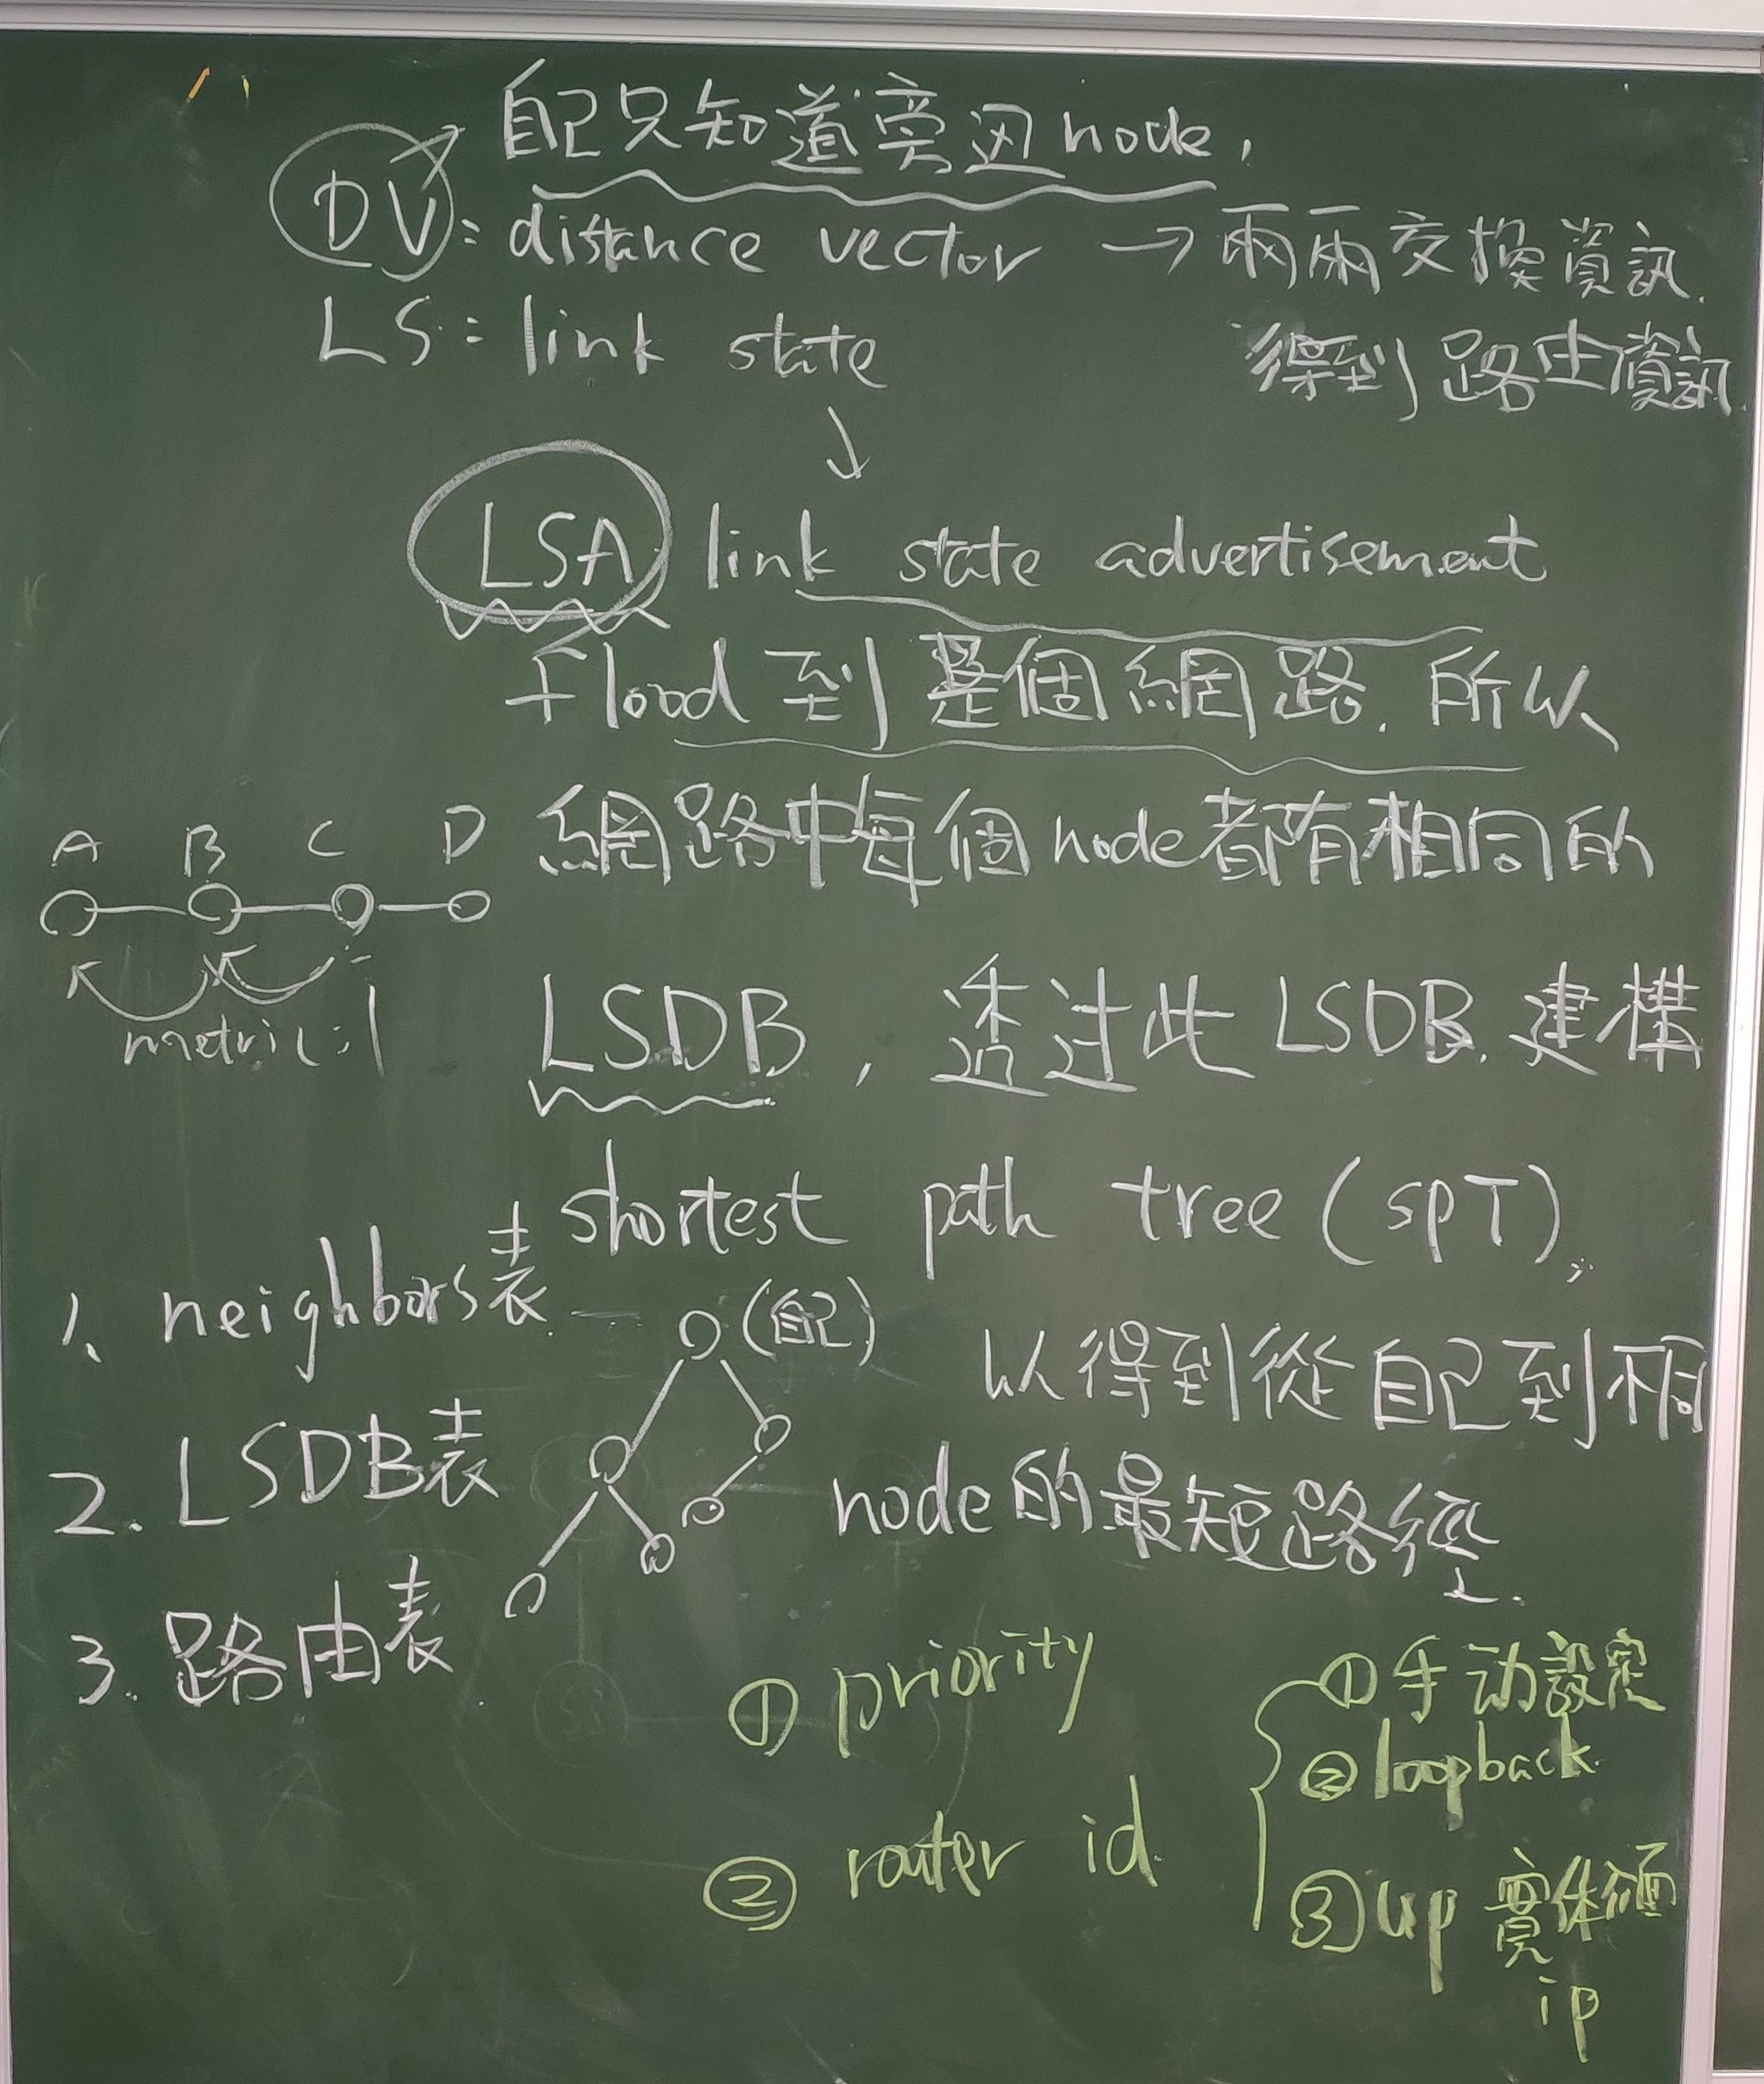 自己只知道旁边node,
DV: distance vector → 兩兩交換資訊.
得到路由資訊
LS: link state
↓
LSA link state advertisement
flood到整個網路. 所以
網路中每個node都有相同的
A B C D
metric:1
LSDB, 透过此LSDB. 建構
shortest path tree (SPT),
(自己) 以得到從自己到不同
node的最短路徑.
1. neighbors表
2. LSDB表
3. 路由表
① priority
② router id
①手动設定
②loopback
③up 實体介面
ip